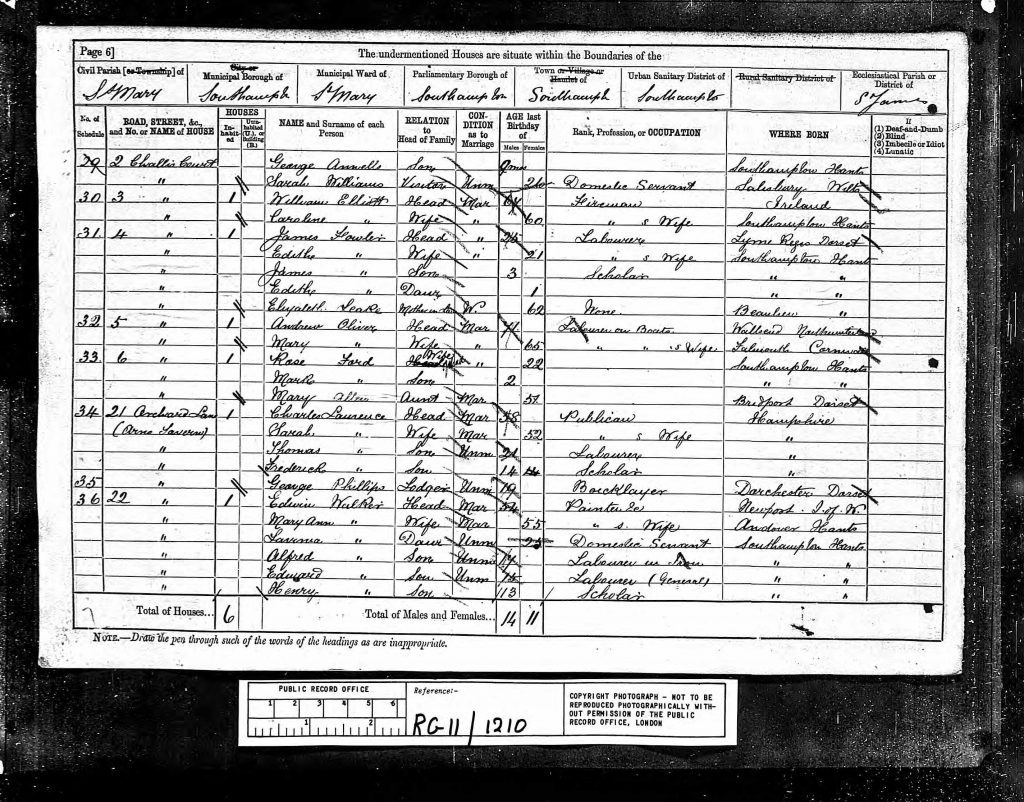 Page 6]
The undermentioned Houses are situate within the Boundaries of the
Civil Parish [or Township] of
City or Municipal Borough of
Municipal Ward of
Parliamentary Borough of
Town or Village or Hamlet of
Urban Sanitary District of
Rural Sanitary District of
Ecclesiastical Parish or District of
St Mary Southampton St Mary Southampton Southampton Southampton St James
No. of Schedule
ROAD, STREET, &c., and No. or NAME of HOUSE
HOUSES
Inhabited
Uninhabited (U.), or Building (B.)
NAME and Surname of each Person
RELATION to Head of Family
CONDITION as to Marriage
AGE last Birthday of
Males Females
Rank, Profession, or OCCUPATION
WHERE BORN
If
(1) Deaf-and-Dumb
(2) Blind
(3) Imbecile or Idiot
(4) Lunatic
29 2 Challis Court George Annells Son 9 mos Southampton Hants
" Sarah Williams Visitor Unm 26 Domestic Servant Salisbury Wilts
30 3 " 1 William Elliott Head Mar 64 Fireman Ireland
" Caroline " Wife " 60 " s Wife Southampton Hants
31 4 " 1 James Fowler Head " 25 Labourer Lyme Regis Dorset
" Edith " Wife " 21 " s Wife Southampton Hants
" James " Son 3 Scholar " "
" Edith " Daur 1 " "
" Elizabeth Leake W. 62 None Beaulieu "
32 5 " 1 Andrew Oliver Head Mar 71 Labourer on Boats Wallsend
" Mary " Wife " 65 " " s Wife Falmouth Cornwall
33 6 " 1 Rose Ford Wife " 22 Southampton Hants
" Mark " Son 2 " "
" Mary Allen Aunt Mar 51 Bridport Dorset
34 21 Orchard Lan 1 Charles Laurence Head Mar 58 Publican Hampshire
(Arno Tavern) Sarah " Wife Mar 52 " s Wife "
" Thomas " Son Unm 21 Labourer "
" Frederick " Son 14 Scholar "
35 " George Phillips Lodger Unm 19 Bricklayer Dorchester Dorset
36 22 " 1 Edwin Walker Head Mar 54 Painter Newport I. of W.
" Mary Ann " Wife Mar 55 " s Wife Andover Hants
" Lavinia " Daur Unm 25 Domestic Servant Southampton Hants
" Alfred " Son Unm 17 Labourer in Iron " "
" Edward " Son Unm 15 Labourer (General) " "
" Henry " Son 13 Scholar " "
Total of Houses... 6 Total of Males and Females... 14 11
NOTE.—Draw the pen through such of the words of the headings as are inappropriate.
PUBLIC RECORD OFFICE
1 2 3 4 5 6
1 2
Reference:-
RG 11 / 1210
COPYRIGHT PHOTOGRAPH - NOT TO BE
REPRODUCED PHOTOGRAPHICALLY WITH-
OUT PERMISSION OF THE PUBLIC
RECORD OFFICE, LONDON